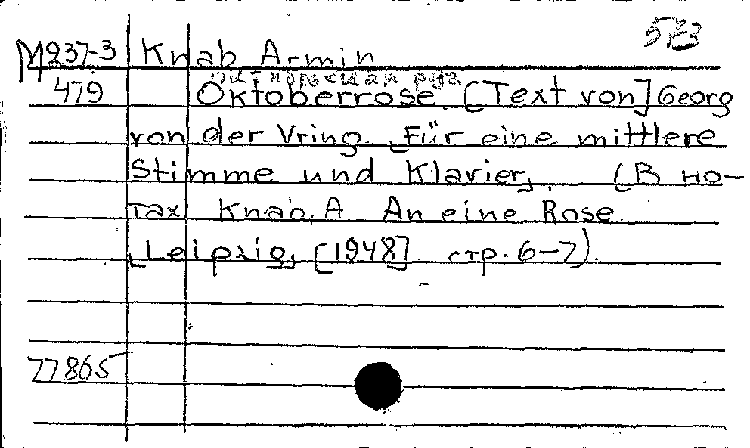 573
М237-3 Knab Armin
479 Oktoberrose [Text von] Georg
von der Vring. Für eine mittlere
Stimme und Klavier, (В но-
тах Knab, A. An eine Rose
Leipzig, [1948] стр. 6-7).
77865